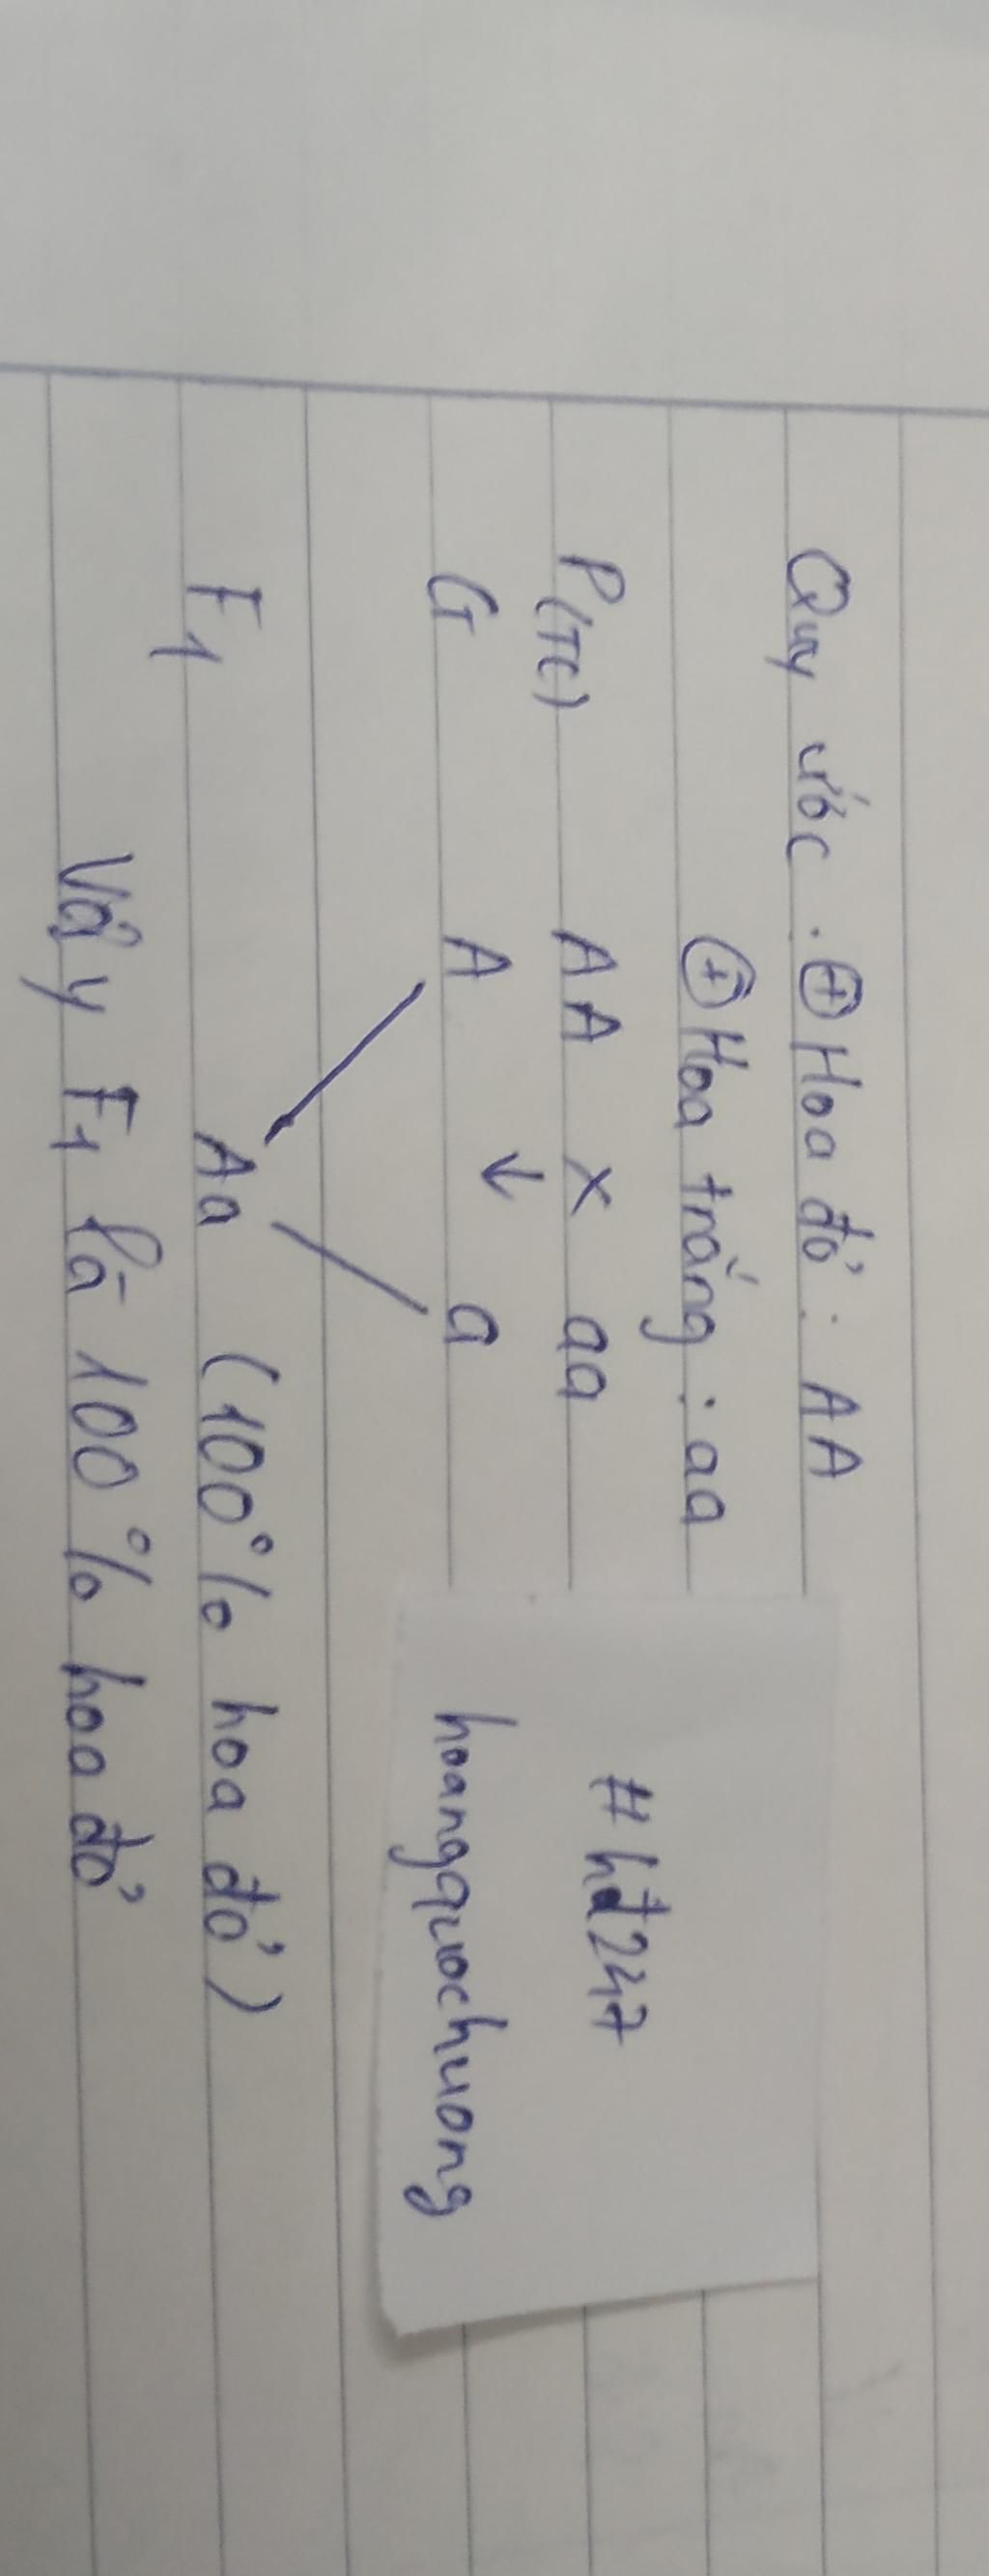 Quy ước : ⊕ Hoa đỏ : AA
⊕ Hoa trắng : aa
P(TC) AA x aa
↓
G A a
F1 Aa (100% hoa đỏ)
Vậy F1 là 100% hoa đỏ
#hd247
hoangquochuong